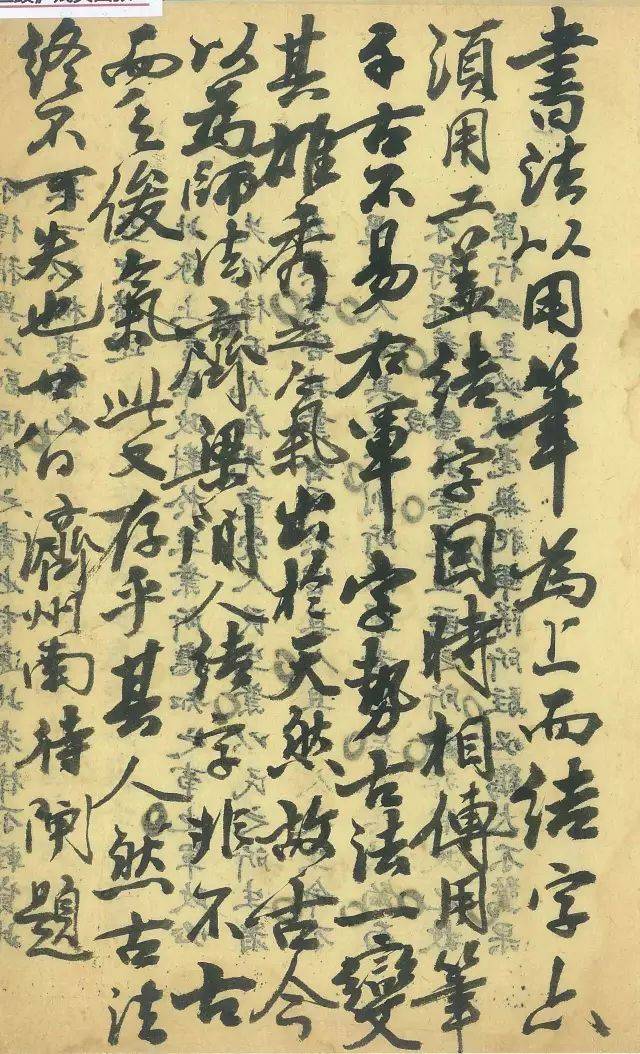 書法以用筆為上而結字亦
湏用工盖結字因時相傳用筆
千古不易右軍字勢古法一變
其雄秀之氣出於天然故古今
以為師法齊梁間人結字非不古
而乏俊氣此又存乎其人然古法
終不可失也廿八日濟州南待閘題